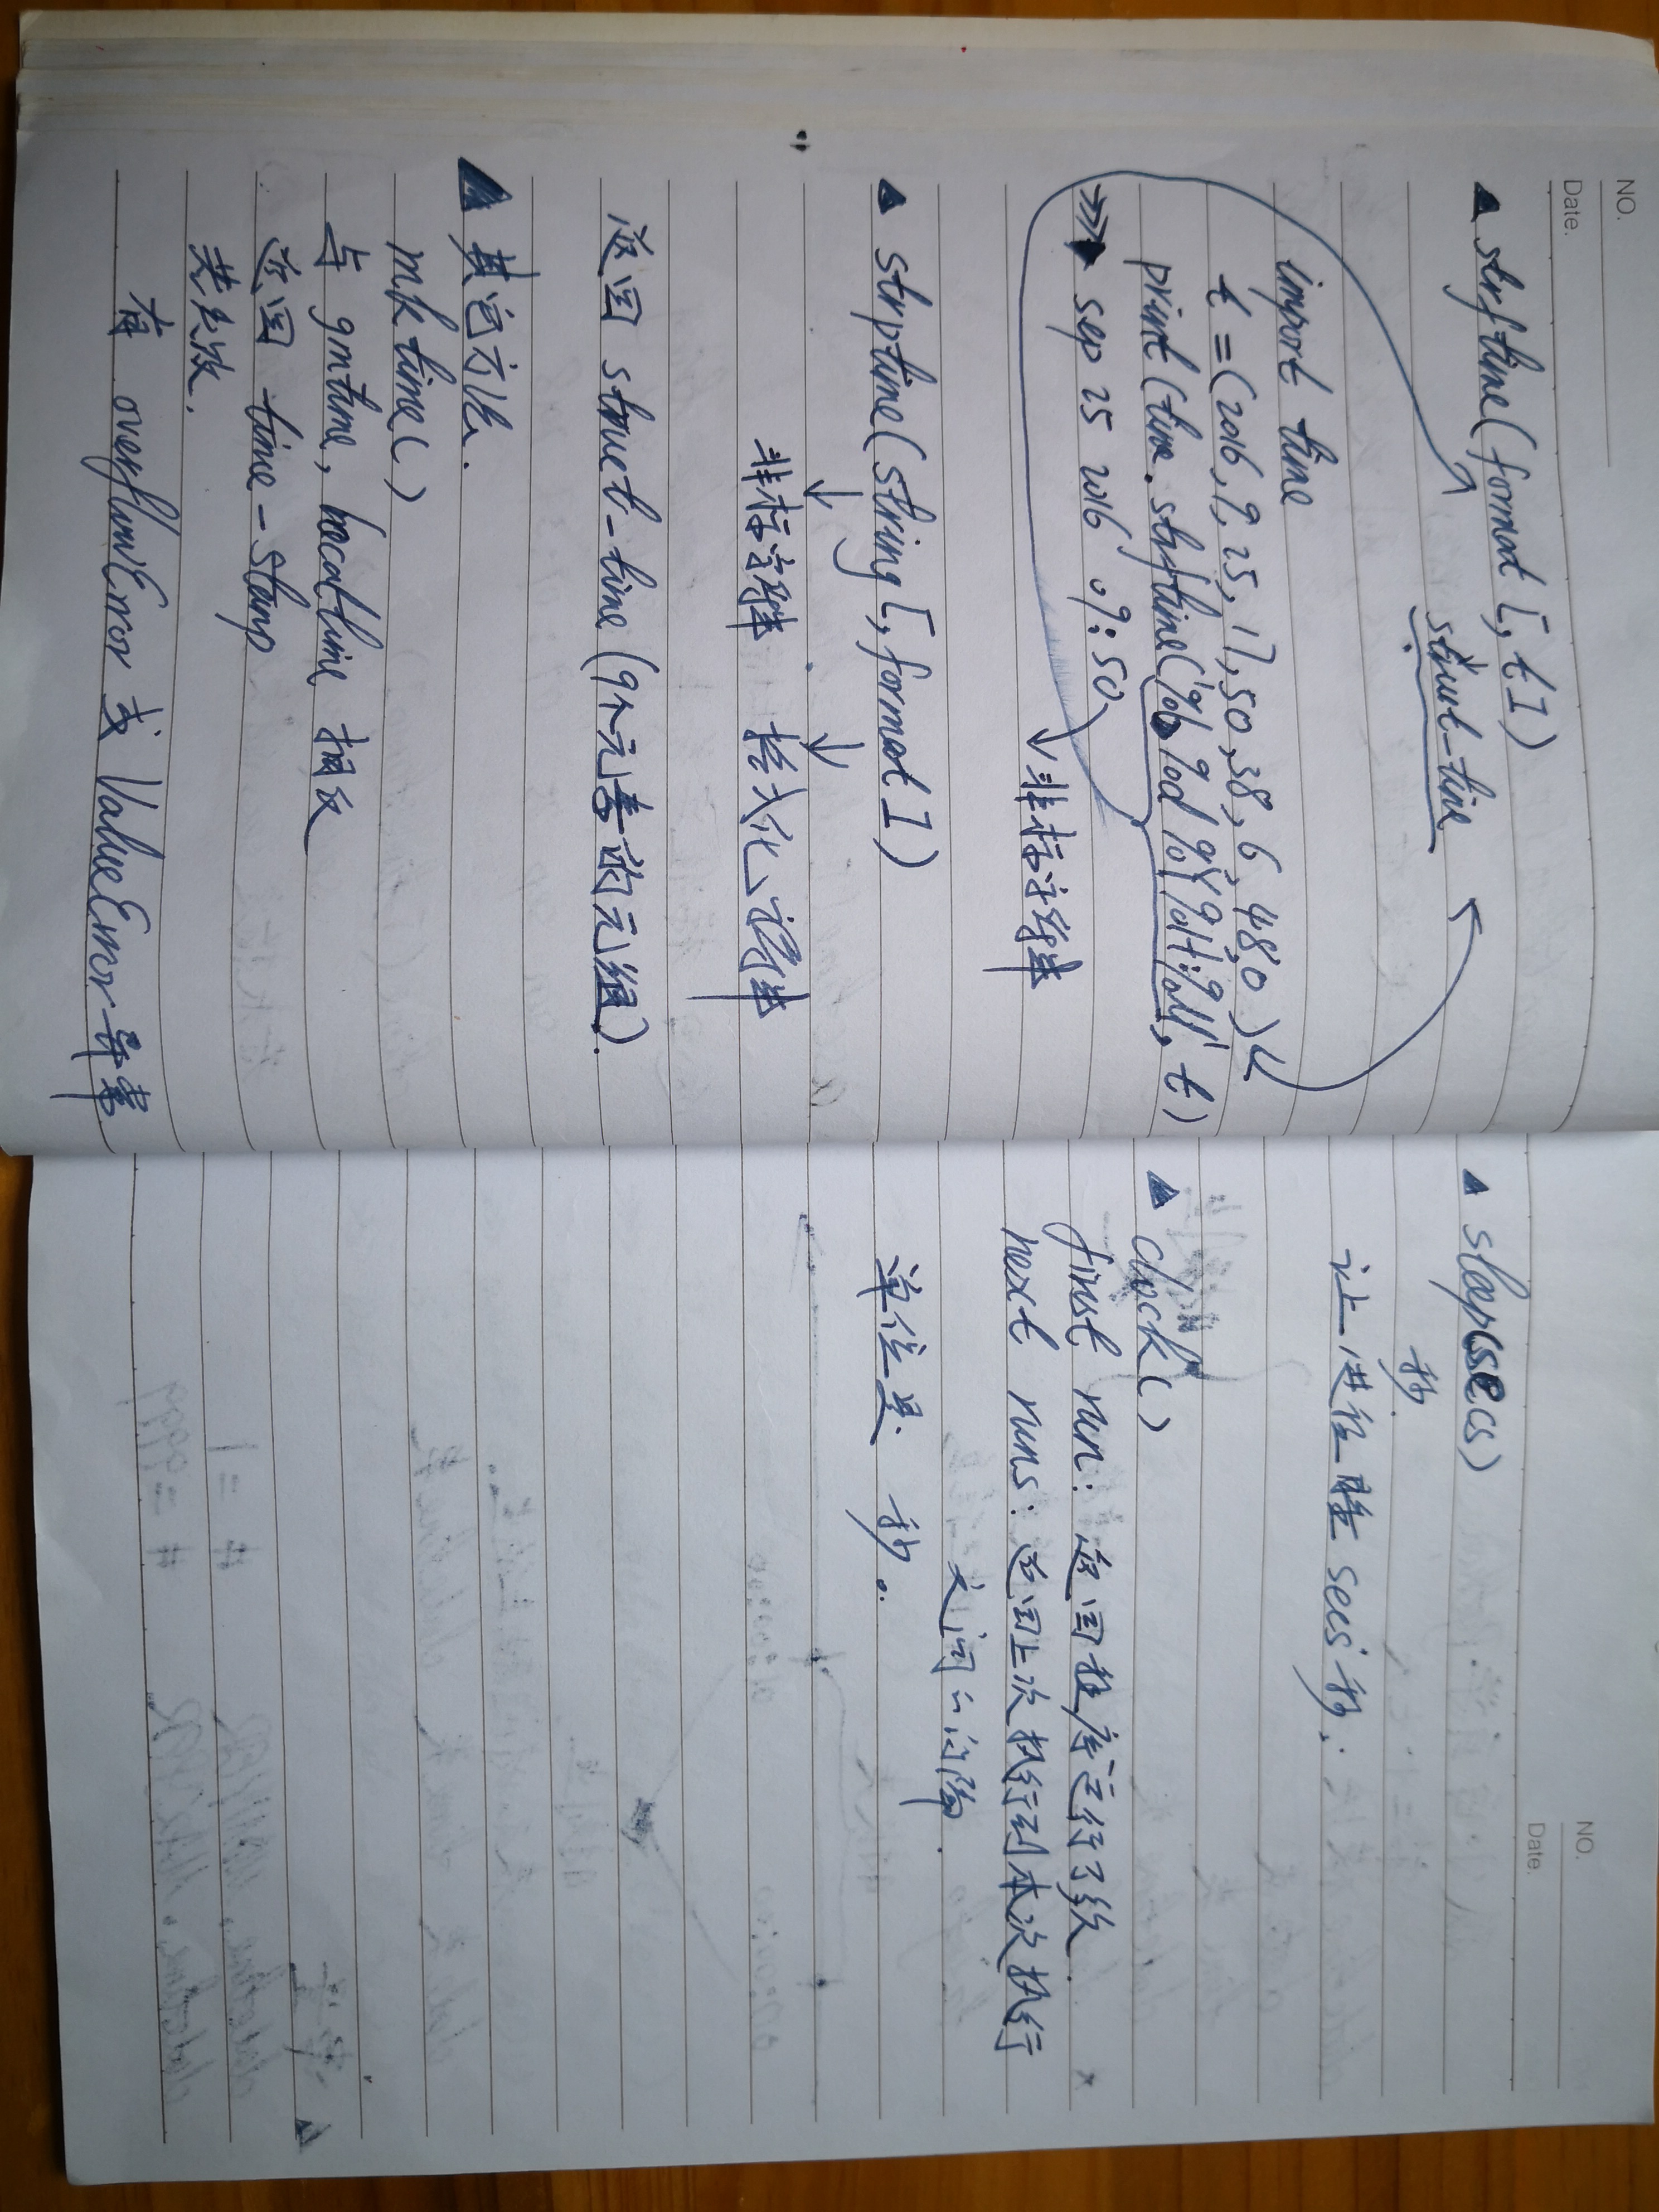 NO.
Date.
▲ strftime(format [, t])
struct-time
import time
t = (2016, 9, 25, 17, 50, 38, 6, 48, 0)
print(time.strftime('%b %d %Y %H:%M', t)
>>> sep 25 2016 09:50
→ 非标字符串
▲ strptime(string[, format])
↓ ↓
非标字符串 格式化字符串
返回 struct-time (9个元素的元组).
▲ 其它方法.
mktime()
与 gmtime, localtime 相反
返回 time-stamp
若失败.
有 overflowError 或 ValueError 异常
NO.
Date.
▲ sleep(secs)
秒.
让进程睡 secs 秒.
▲ clock()
first run: 返回程序运行了多久
next runs: 返回上次执行到本次执行
之间的间隔.
单位是 秒.